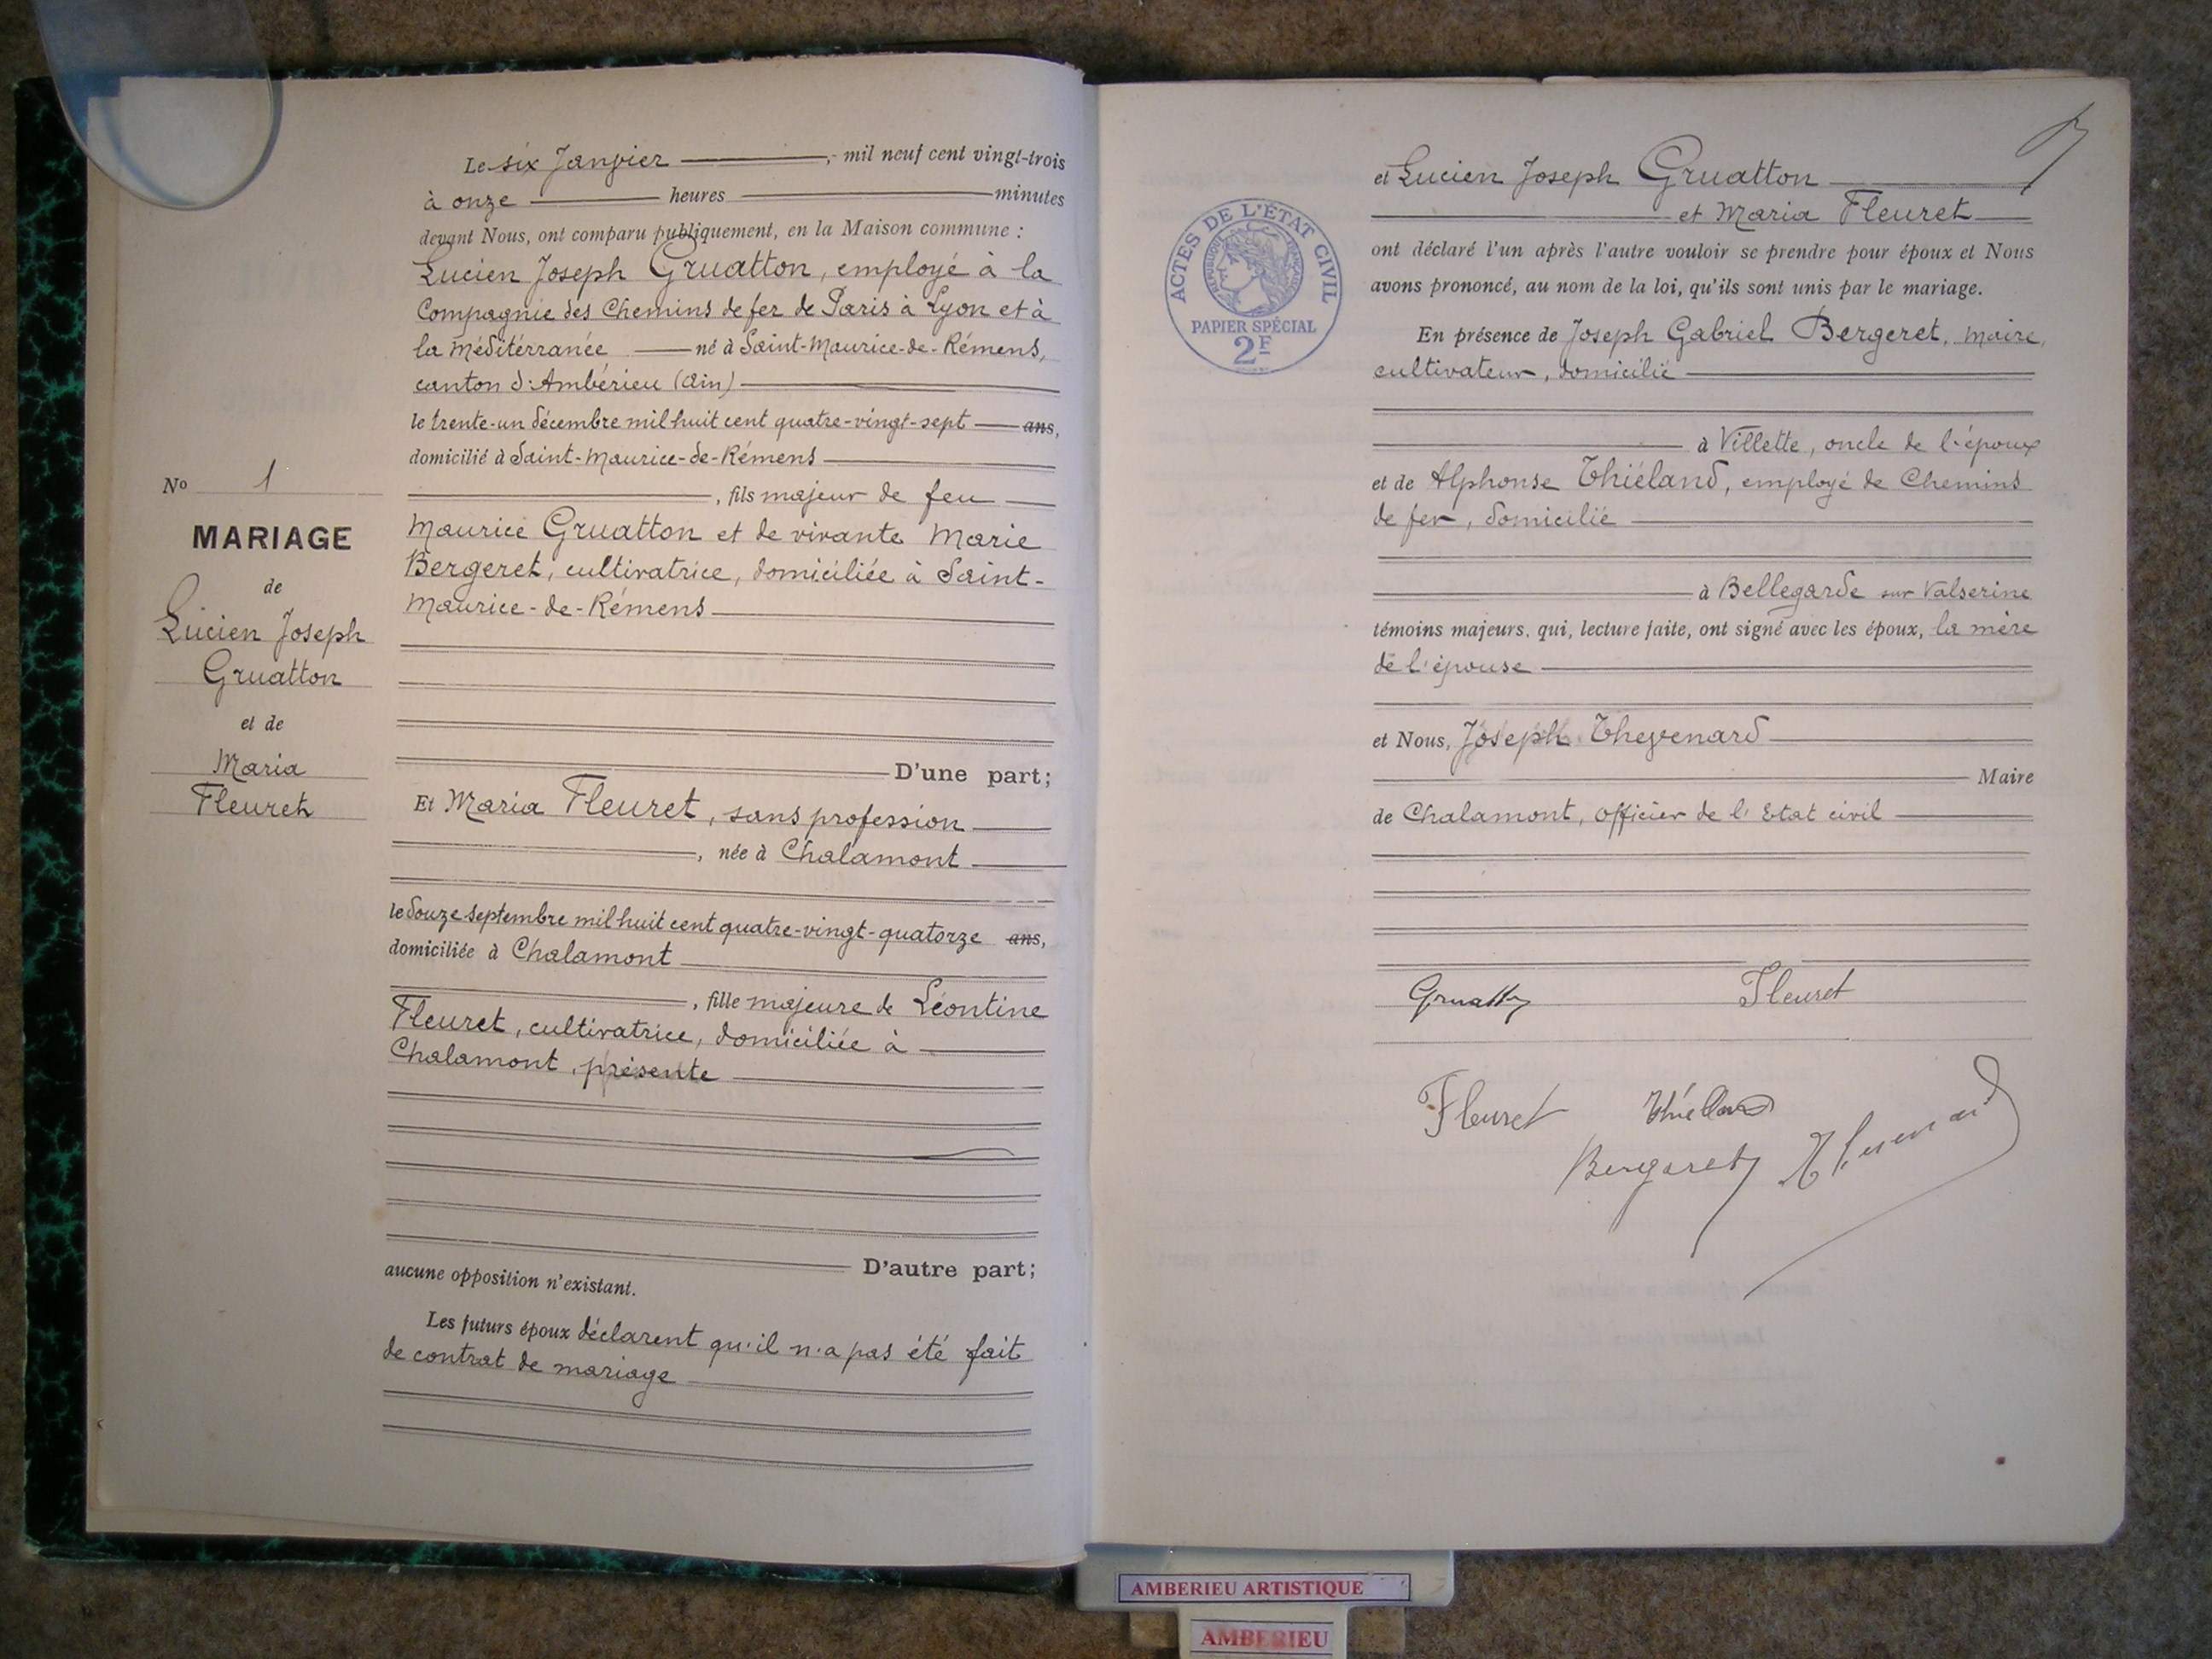 Le six Janvier, mil neuf cent vingt-trois
à onze heures minutes
devant Nous, ont comparu publiquement, en la Maison commune :
Lucien Joseph Gruatton, employé à la
Compagnie des Chemins de fer de Paris à Lyon et à
la Méditérranée né à Saint-Maurice-de-Rémens,
canton d'Ambérieu (Ain)
le trente-un décembre mil huit cent quatre-vingt-sept ans,
domicilié à Saint-Maurice-de-Rémens
, fils majeur de feu
Maurice Gruatton et de vivante Marie
Bergeret, cultivatrice, domiciliée à Saint-
Maurice-de-Rémens
D'une part;
Et Maria Fleuret, sans profession
, née à Chalamont
le douze septembre mil huit cent quatre-vingt-quatorze ans,
domiciliée à Chalamont
, fille majeure de Léontine
Fleuret, cultivatrice, domiciliée à
Chalamont, présente
D'autre part;
aucune opposition n'existant.
Les futurs époux déclarent qu'il n'a pas été fait
de contrat de mariage
No 1
MARIAGE
de
Lucien Joseph
Gruatton
et de
Maria
Fleuret
et Lucien Joseph Gruatton
et Maria Fleuret
ont déclaré l'un après l'autre vouloir se prendre pour époux et Nous
avons prononcé, au nom de la loi, qu'ils sont unis par le mariage.
En présence de Joseph Gabriel Bergeret, maire,
cultivateur, domicilié
à Villette, oncle de l'époux
et de Alphonse Thiéland, employé de Chemins
de fer, domicilié
à Bellegarde sur Valserine
témoins majeurs, qui, lecture faite, ont signé avec les époux, la mère
de l'épouse
et Nous, Joseph Thevenard
Maire
de Chalamont, officier de l'Etat civil
Gruatton Fleuret
Fleuret Thiéland
Bergeret Thevenard
ACTES DE L'ÉTAT CIVIL
RÉPUBLIQUE FRANÇAISE
PAPIER SPÉCIAL
2F
AMBERIEU ARTISTIQUE
AMBERIEU